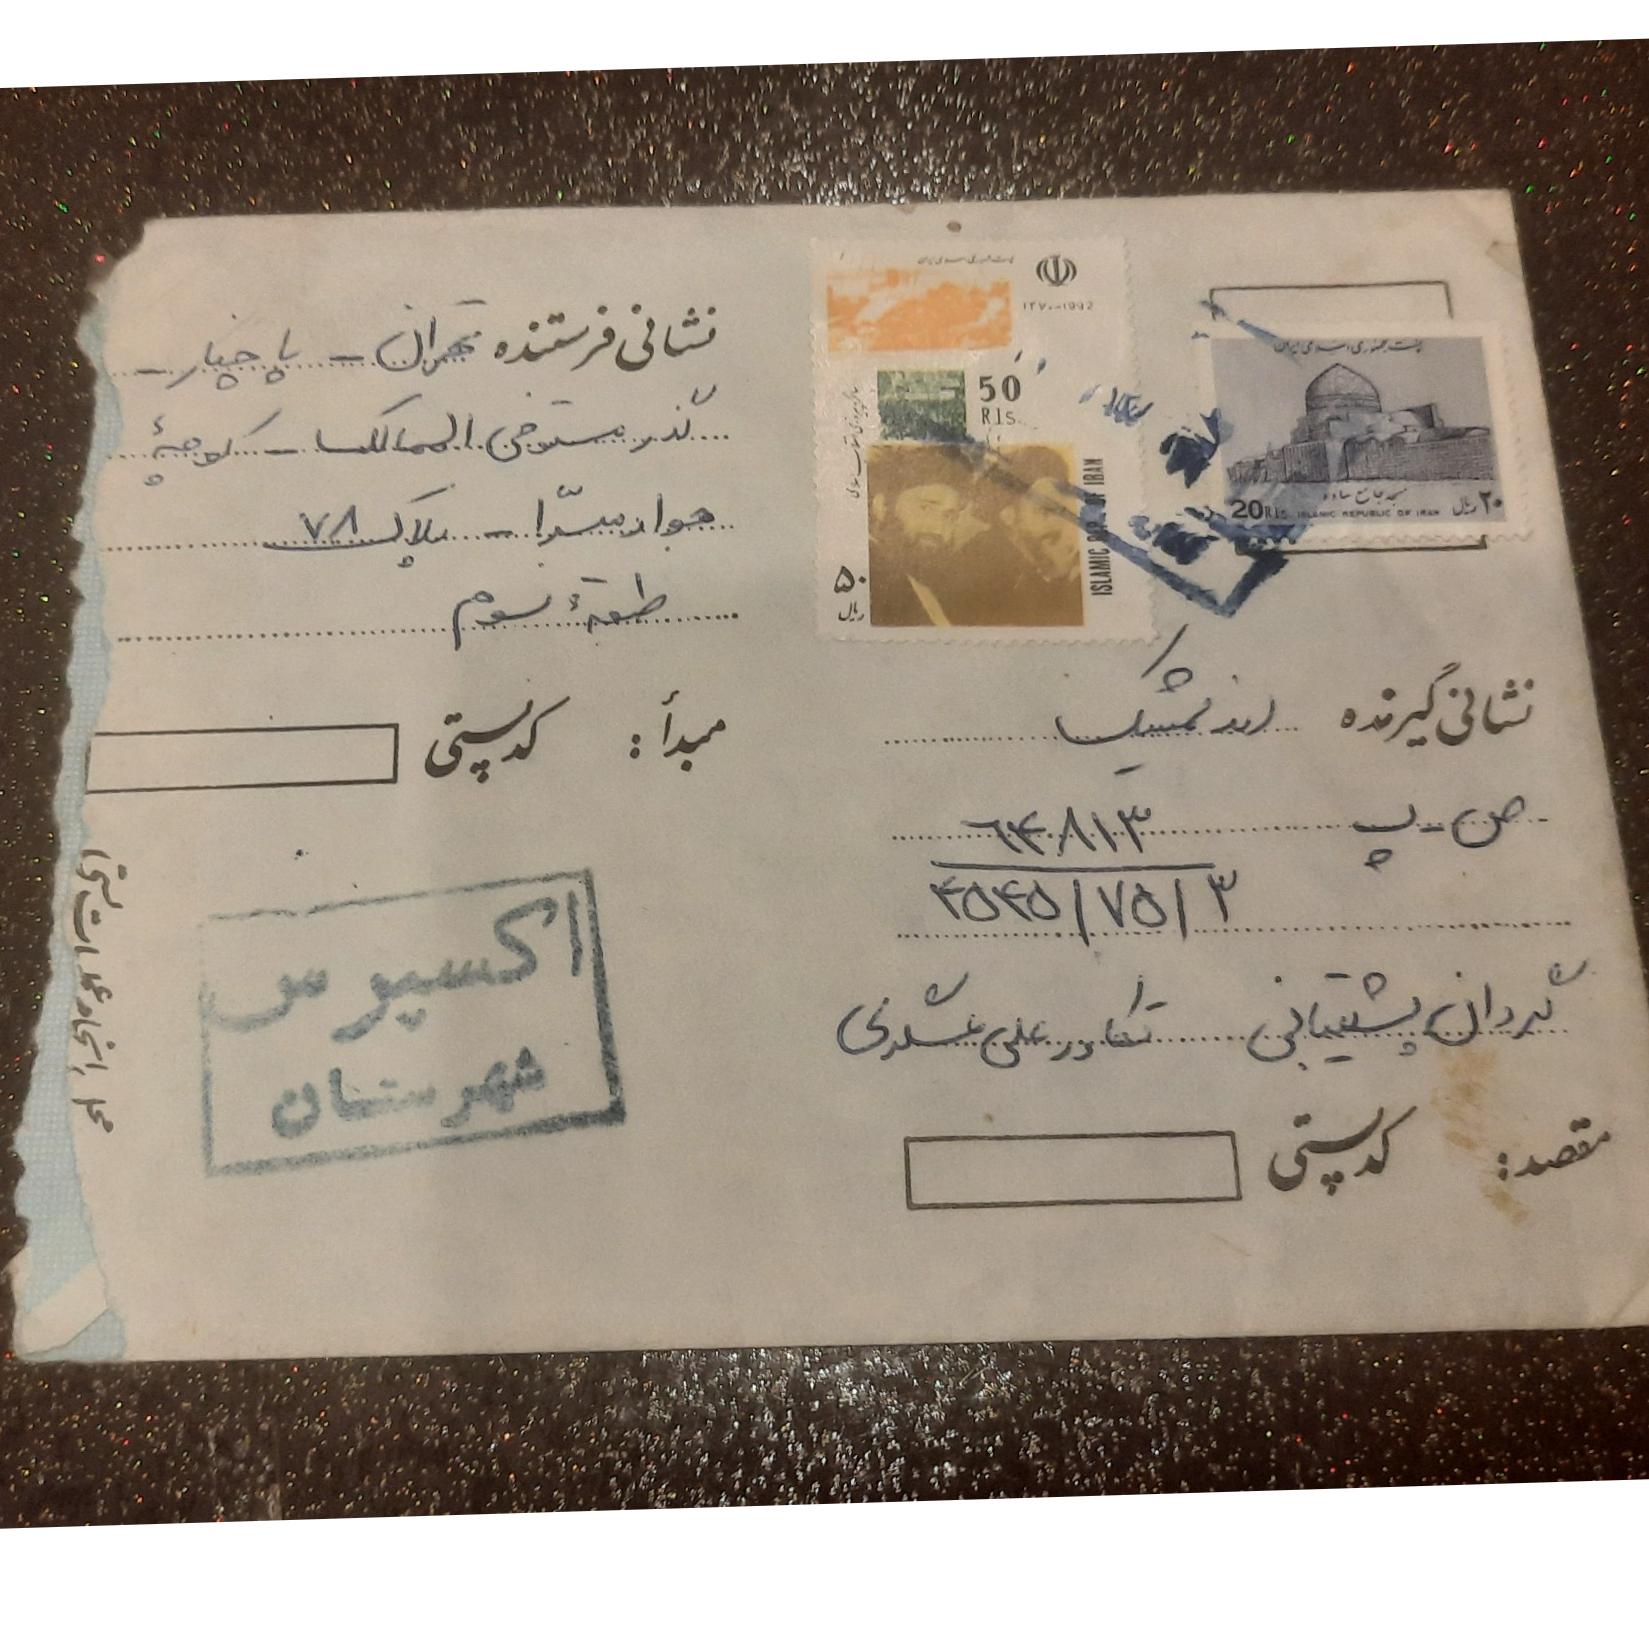 نشانی فرستنده تهران - پاچنار -
گذر مستوفی الممالک - کوچهٔ
جواد میرزا - پلاک ۷۸
طبقهٔ سوم
مبدأ: کدپستی
پست جمهوری اسلامی ایران
۱۳۷۰-1992
50
Rls.
۵۰
ریال
ISLAMIC REP. OF IRAN
پست جمهوری اسلامی ایران
مسجد جامع ساوه
20 Rls. ISLAMIC REPUBLIC OF IRAN ۲۰ ریال
نشانی گیرنده اندیمشک
ص - پ ۶۴۸۱۳
۴۵۴۵/۷۵/۳
گردان پشتیبانی تکاور علی
مقصد: کدپستی
اکسپرس
شهرستان